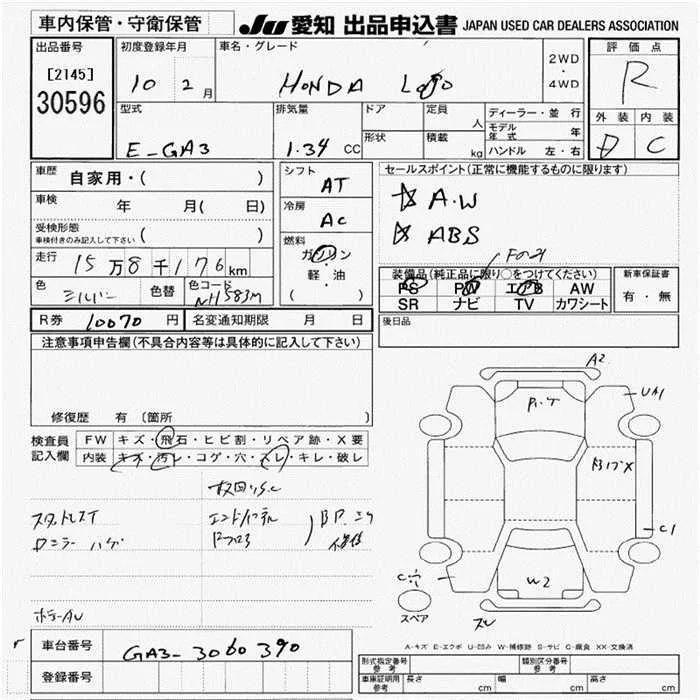 車内保管・守衛保管
JU 愛知 出品申込書 JAPAN USED CAR DEALERS ASSOCIATION
出品番号
[2145]
30596
初度登録年月
10 2 月
車名・グレード
HONDA Logo
2WD
・
4WD
評価点
R
外装 内装
D C
型式
E-GA3
排気量
1.34 CC
ドア
形状
定員
人
積載
kg
ディーラー・並行
モデル年式 年
ハンドル 左・右
車歴
自家用・( )
車検
年 月( 日)
受検形態
車検付きのみ記入して下さい
( )
走行
15万8千176km
色
シルバー
色替
色コード
NH583M
シフト
AT
冷房
AC
燃料
ガソリン
・
軽・油
( )
セールスポイント(正常に機能するものに限ります)
☆ A.W
☆ ABS
装備品(純正品に限り○をつけてください)
PS PW エアB AW
SR ナビ TV カワシート
新車保証書
有・無
後日品
R券 10070 円
名変通知期限 月 日
注意事項申告欄(不具合内容等は具体的に記入して下さい)
修復歴 有(箇所 )
検査員
記入欄
FW キズ・飛石・ヒビ割・リペア跡・X要
内装 キズ・汚レ・コゲ・穴・スレ・キレ・破レ
スタットレスイ
エンドパネル
BP
A2
U
X
C1
W2
スペア
車台番号
GA3-3060390
登録番号
A-キズ E-エクボ U-凹み W-補修跡 S-サビ C-腐食 XX-交換済
形式指定番号
参考
類別区分番号
参考
車庫証明用
参考
長さ cm 幅 cm 高さ cm